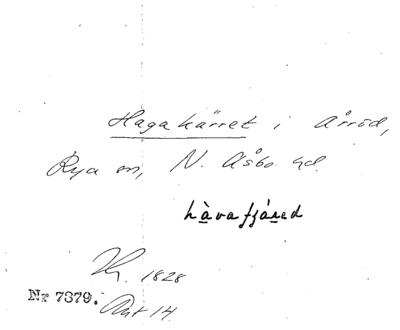 Hagakärret i Årröd,
Rya sn, N. Åsbo hd.
hàvafjáred
Kr. 1828
Nr 7379. Akt 14